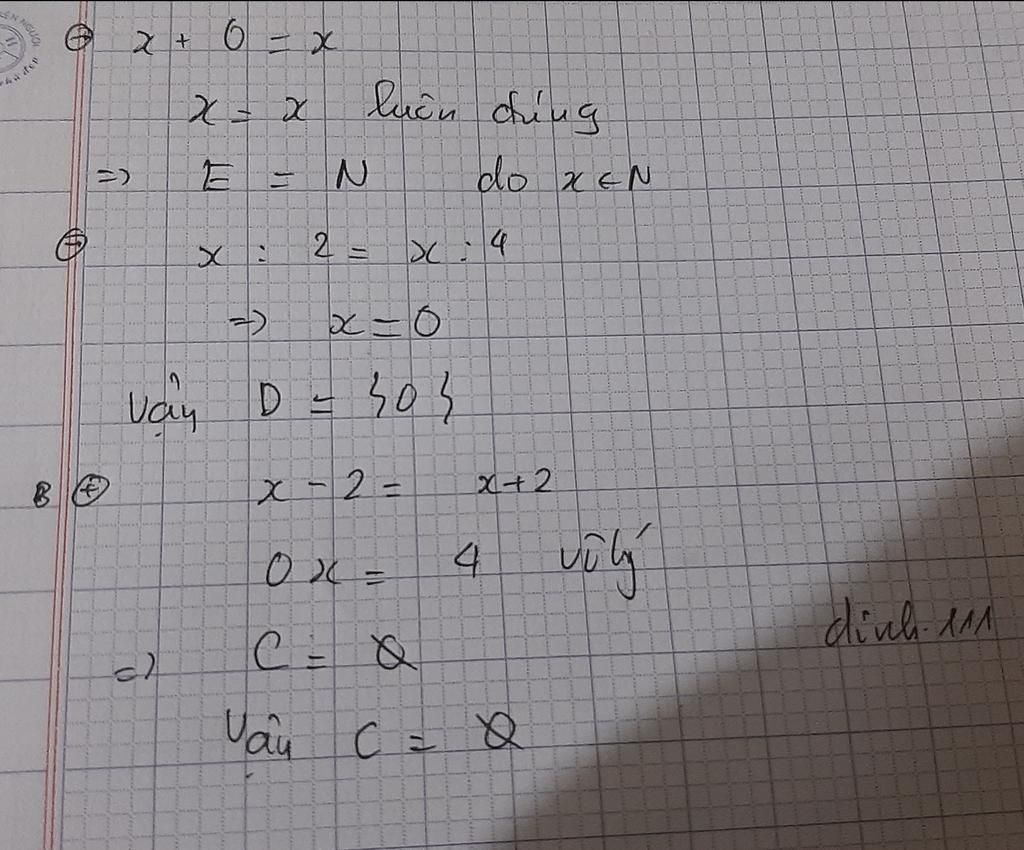 ⊕ x + 0 = x
x = x luôn đúng
=> E = N do x ∈ N
⊕ x : 2 = x : 4
=> x = 0
Vậy D = {0}
B ⊕ x - 2 = x + 2
0x = 4 vô lý
=> C = Ø
dinh.111
Vậy C = Ø